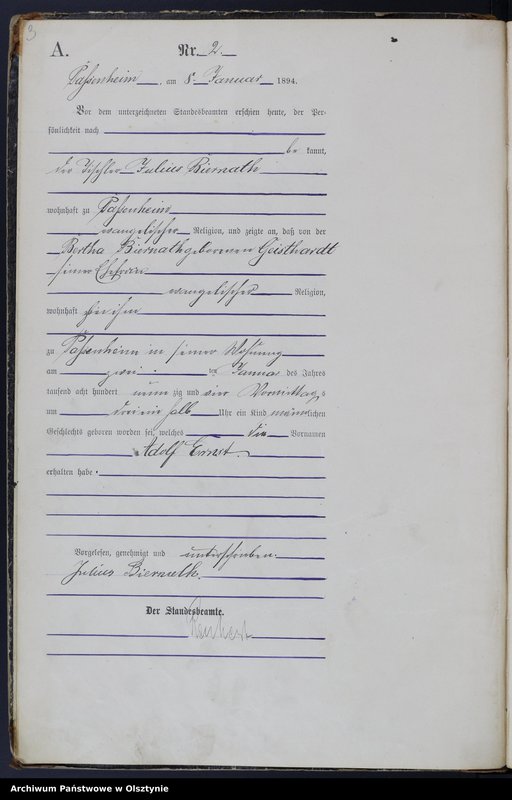 3
A. Nr. 2.
Passenheim, am 8. Januar 1894.
Vor dem unterzeichneten Standesbeamten erschien heute, der Per-
sönlichkeit nach
be kannt,
der Tischler Julius Biernath
wohnhaft zu Passenheim
evangelischer Religion, und zeigte an, daß von der
Bertha Biernath geborenen Geisthardt
seiner Ehefrau
evangelischer Religion,
wohnhaft bei ihm
zu Passenheim in seiner Wohnung
am zwei ten Januar des Jahres
tausend acht hundert neun zig und vier Vormittags
um Uhr ein Kind männlichen
Geschlechts geboren worden sei, welches die Vornamen
Adolf Ernst
erhalten habe.
Vorgelesen, genehmigt und unterschrieben.
Julius Biernath.
Der Standesbeamte.
Archiwum Państwowe w Olsztynie